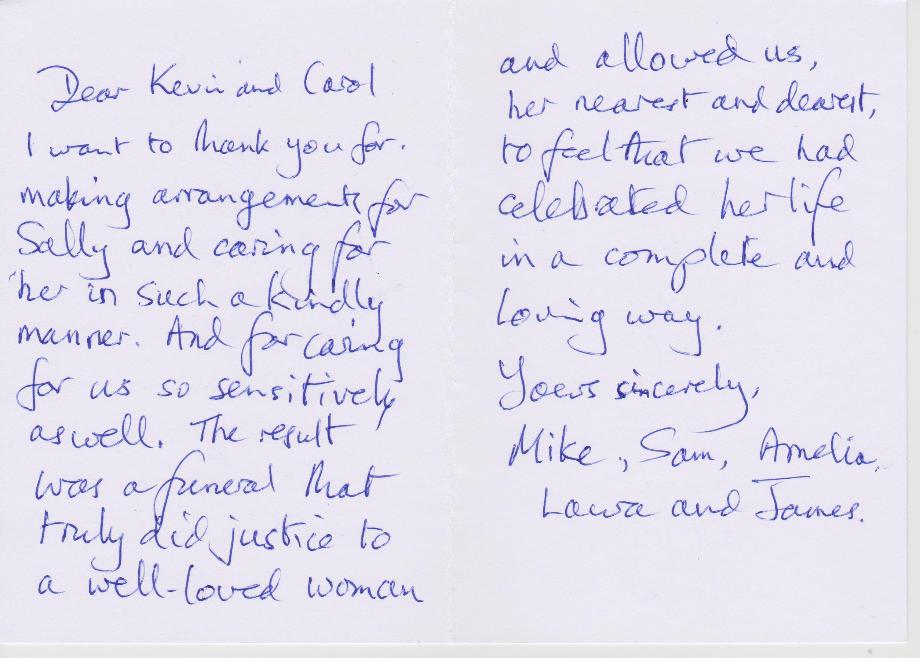 Dear Kevin and Carol
I want to thank you for.
making arrangements for
Sally and caring for
her in such a kindly
manner. And for caring
for us so sensitively
as well. The result
was a funeral that
truly did justice to
a well-loved woman
and allowed us,
her nearest and dearest,
to feel that we had
celebrated her life
in a complete and
loving way.
Yours sincerely,
Mike, Sam, Amelia,
Laura and James.